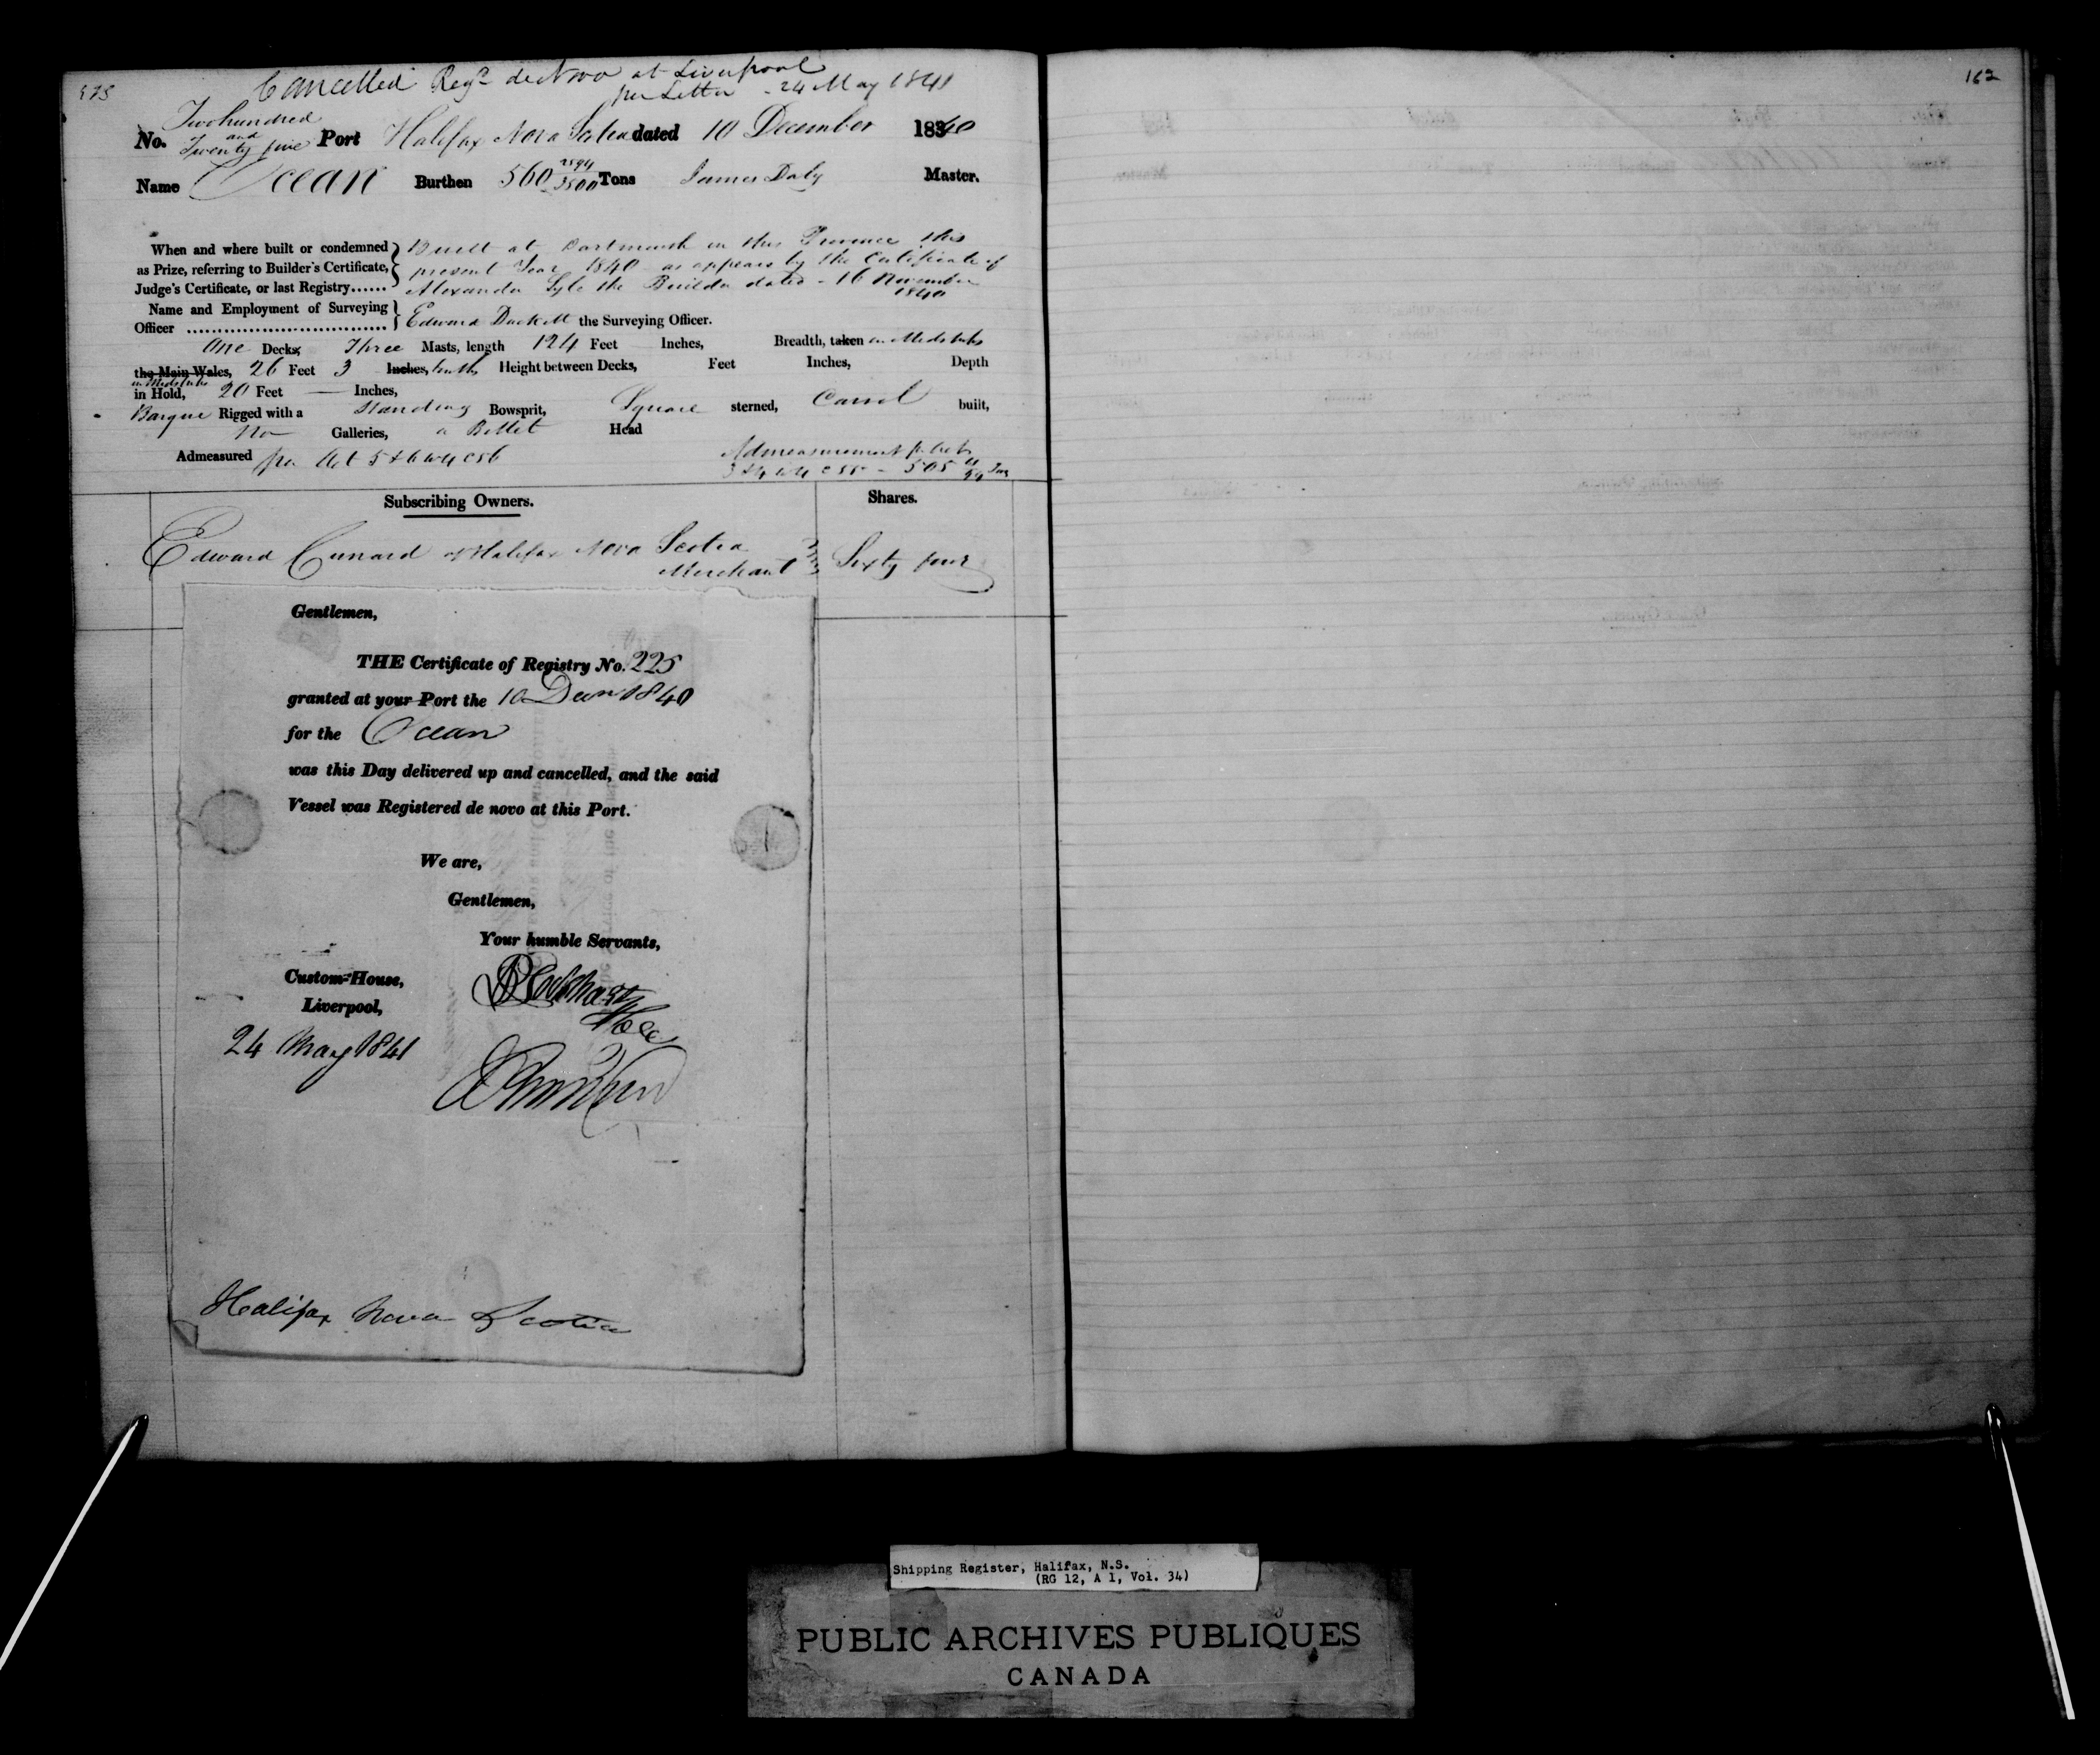 225
Cancelled Regd de Novo at Liverpool
per Letter - 24 May 1841
162
No. Two hundred and Twenty five Port Halifax Nova Scotia dated 10 December 1840
Name Ocean Burthen 560 2594/3500 Tons James Daly Master.
When and where built or condemned } Built at Dartmouth in this Province this
as Prize, referring to Builder's Certificate, present Year 1840 as appears by the Certificate of
Judge's Certificate, or last Registry...... Alexander Lyle the Builder dated - 16 November 1840
Name and Employment of Surveying
Officer ................................ } Edward Duckett the Surveying Officer.
One Decks, Three Masts, length 124 Feet Inches, Breadth, taken in Midships
the Main Wales, 26 Feet 3 Inches, tenths Height between Decks, Feet Inches, Depth
in Midships
in Hold, 20 Feet — Inches,
Barque Rigged with a Standing Bowsprit, Square sterned, Carvel built,
No Galleries, a Billet Head
Admeasured per Act 5 & 6 W 4 c 56 Admeasurement pr Act
3 & 4 W 4 c 55 - 505 Tns
Subscribing Owners. Shares.
Edward Cunard of Halifax Nova Scotia
Merchant } Sixty four
Gentlemen,
THE Certificate of Registry No. 225
granted at your Port the 10 Decr 1840
for the Ocean
was this Day delivered up and cancelled, and the said
Vessel was Registered de novo at this Port.
We are,
Gentlemen,
Your humble Servants,
Custom-House,
Liverpool,
24 May 1841
Halifax Nova Scotia
Shipping Register, Halifax, N.S.
(RG 12, A 1, Vol. 34)
PUBLIC ARCHIVES PUBLIQUES
CANADA